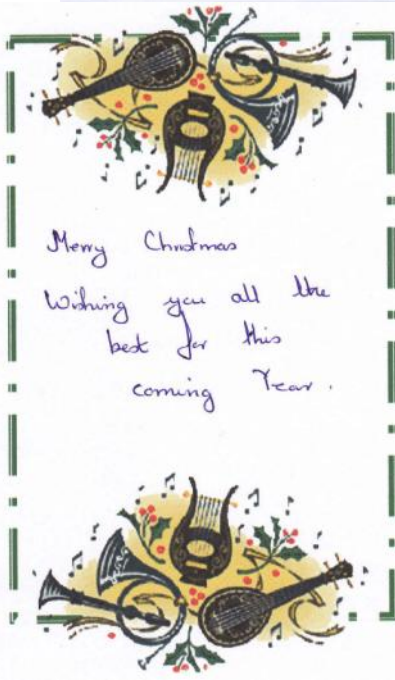 Merry Christmas
Wishing you all the
best for this
coming Year.